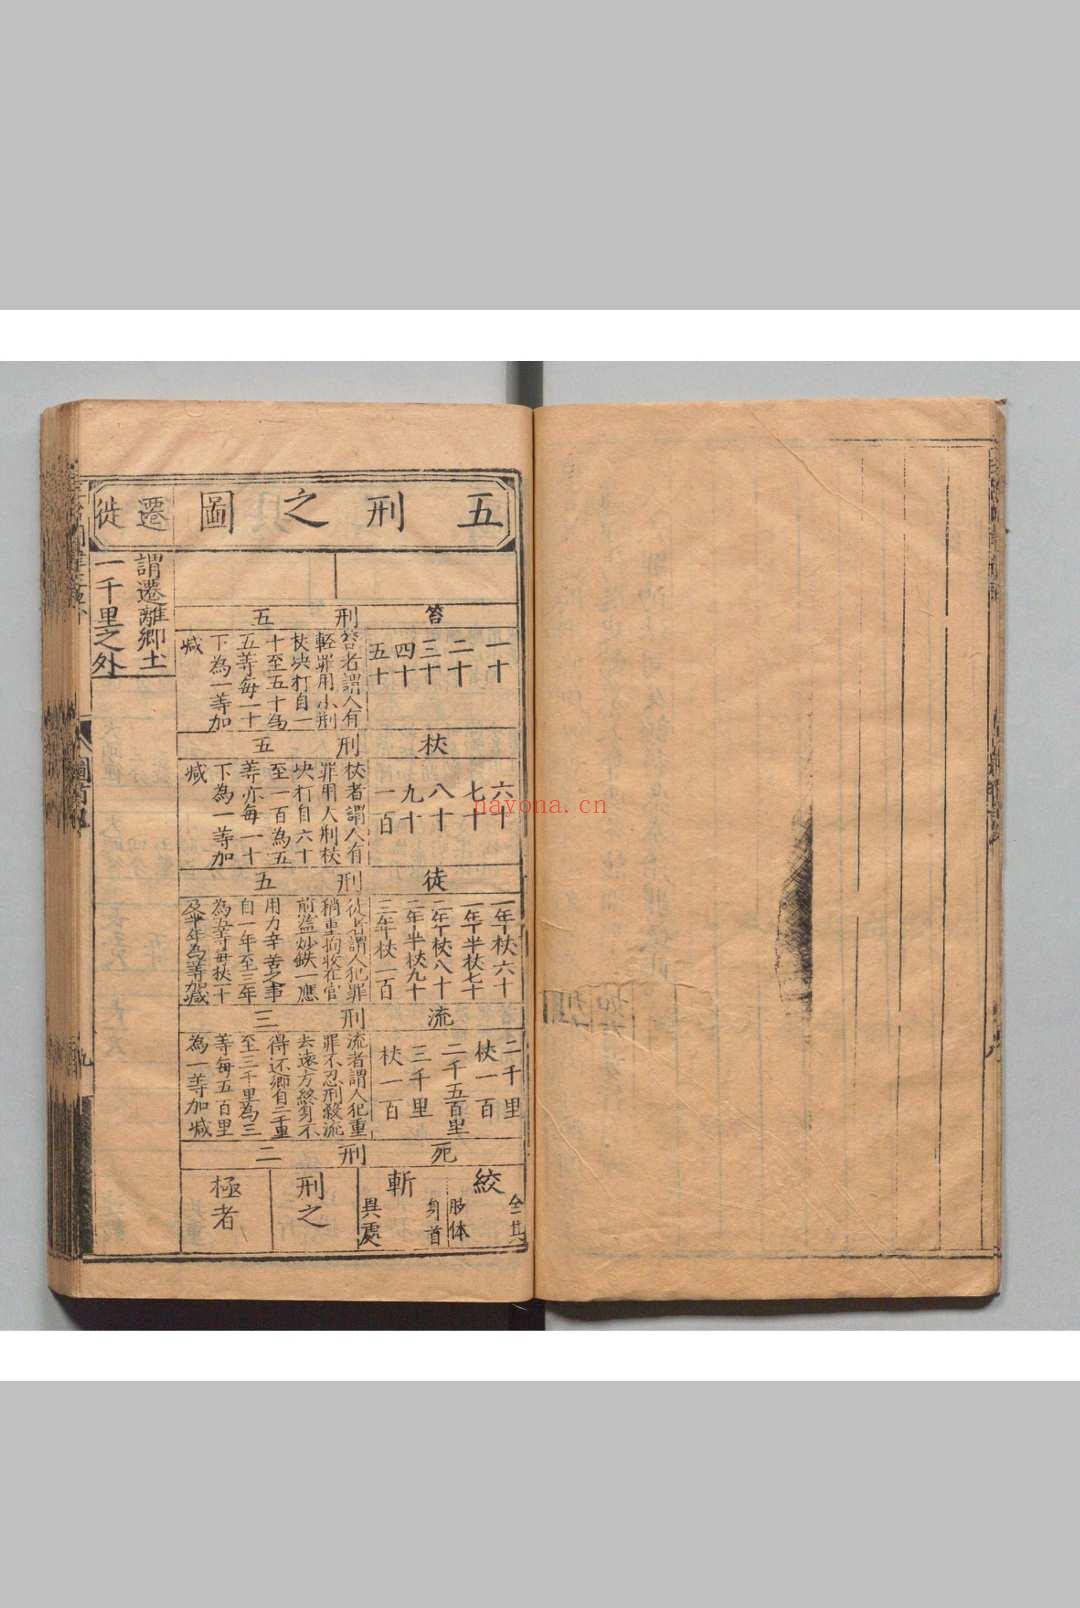 五刑之圖
遷徙
謂遷離鄉土
一千里之外
笞刑五
一十
二十
三十
四十
五十
笞者謂人有
輕罪用小荆
杖決打自一
十至五十為
五等每一十
下為一等加
減
杖刑五
六十
七十
八十
九十
一百
杖者謂人有
罪用人荆杖
決打自六十
至一百為五
等亦每一十
下為一等加
減
徒刑五
一年杖六十
一年半杖七十
二年杖八十
二年半杖九十
三年杖一百
徒者謂人犯罪
稍重拘收在官
前盐炒鉄一應
用力辛苦之事
自一年至三年
為五等每杖一十
及半年為一等加減
流刑三
二千里
杖一百
二千五百里
三千里
杖一百
流者謂人犯重
罪不忍刑殺流
去遠方終身不
得还鄉自二千里
至三千里為三
等每五百里
為一等加減
死刑二
絞
全其
肢体
斬
身首
異處
刑之
極者
nayona.cn